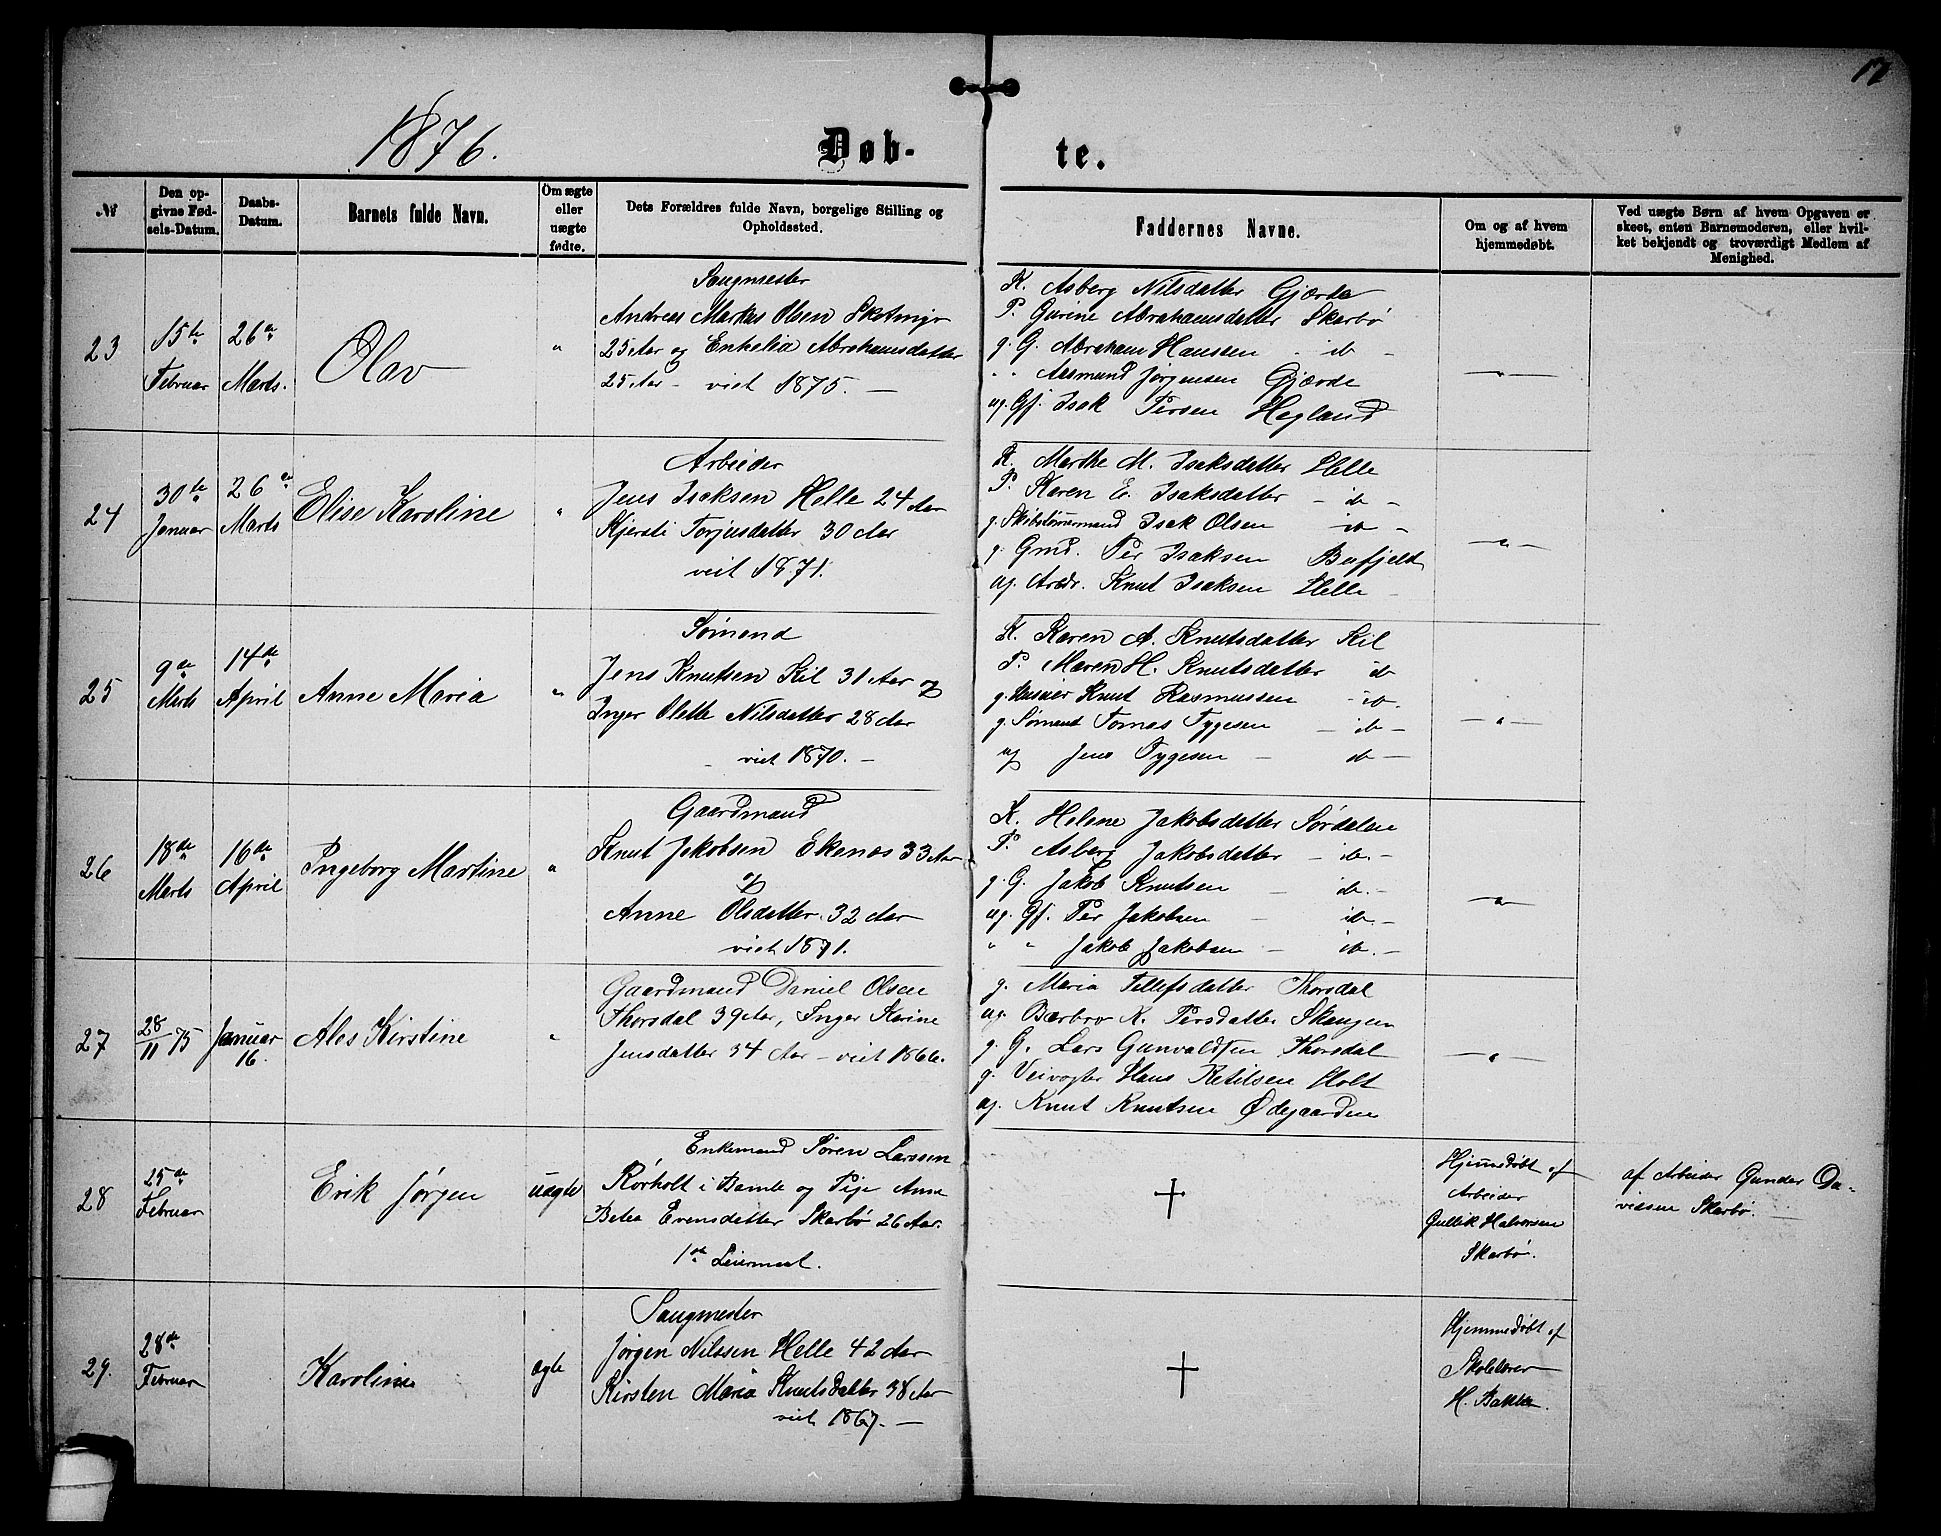 17
1876.
Døb-
te.
№
Den op-
givne Fød-
sels-Datum.
Daabs-
Datum.
Barnets fulde Navn.
Om ægte
eller
uægte
fødte.
Dets Forældres fulde Navn, borgelige Stilling og
Opholdssted.
Faddernes Navne.
Om og af hvem
hjemmedøbt.
Ved uægte Børn af hvem Opgaven er
skeet, enten Barnemoderen, eller hvil-
ket bekjendt og troværdigt Medlem af
Menighed.
23
15de
Februar
26de
Marts.
Olav
"
Saugmester
Andreas Markus Olsen
25 Aar og Enkelia Abrahamsdatter
25 Aar - viet 1875. —
K. Asberg Nilsdatter Gjærde
P. Gurine Abrahamsdatter Skarbø
g. G. Abraham Hanssen - ib -
" " Aasmund Jørgensen Gjærde
ug. Gf. Isak Persen Hegland
— " —
24
30te
Januar
26de
Marts
Elise Karoline
"
Arbeider
Jens Isaksen Helle 24 Aar
Kjersti Torjusdatter 30 Aar
viet 1871.
K. Marthe M. Isaksdatter Helle
P. Karen E. Isaksdatter - ib -
g. Skibstømmermand Isak Olsen ib -
g. Gmd. Per Isaksen Bufjeld
ug. Arbdr. Knut Isaksen Helle
— " —
25
9de
Marts
14de
April
Anne Maria
"
Sømand
Jens Knutsen Kil 31 Aar og
Inger Olette Nilsdatter 28 Aar
- viet 1870. —
K. Karen A. Knutsdatter Kil
P. Maren H. Knutsdatter ib
g. Knut Rasmussen - ib.
g. Sømand Tomas Tygesen - ib -
ug Jens Tygesen - ib —
— " —
26
18de
Marts
16de
April
Ingeborg Martine
"
Gaardmand
Knut Jakobsen Ekenes 33 Aar
og
Anne Olsdatter 32 Aar
viet 1871.
K. Helene Jakobsdatter Sørdalen
P. Asberg Jakobsdatter - ib. -
g. G. Jakob Knutsen - ib. -
ug. Gf. Per Jakobsen - ib -
" " Jakob Jakobsen - ib. -
— " —
27
28/11 75
Januar
16.
Ales Kirstine
"
Gaardmand Daniel Olsen
Thorsdal 39 Aar, Inger Karine
Jensdatter 34 Aar - viet 1866.
g. Maria Tellefsdatter Thorsdal
ug. Barbro K. Persdatter Skaugen
g. G. Lars Gunvaldsen Thorsdal
g. Veivogter Hans Ketilsen Holt
ug. Knut Knutsen Ødegaarden
— " —
28
25de
Februar
Erik Jørgen
uægte
Enkemand Søren Larssen
Rørholt i Bamle og Pige Anne
Betea Evensdatter Skarbø 26 Aar.
1ste Leiermaal.
†
Hjemmedøbt af
Arbeider
Gullik Halvorsen
Skarbø.
af Arbeider Gunder Da-
vidsen Skarbø. —
29.
28de
Februar
Karoline
ægte
Saugmester
Jørgen Nilssen Helle 42 Aar
Kirsten Maria Knutsdatter 38 Aar
viet 1867. —
†
Hjemmedøbt af
Skolelærer
H. Bakken.